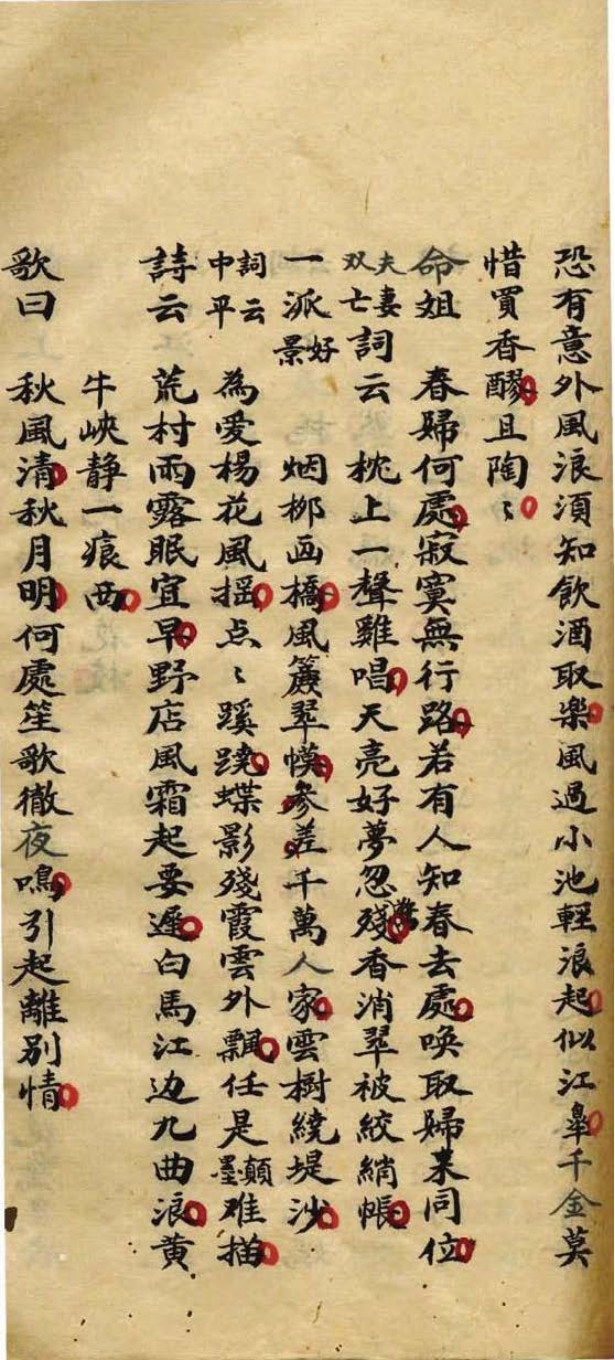 恐有意外風浪須知飲酒取樂風過小池輕浪起似江皋千金莫
惜買香醪且陶〻
命姐 春婦何處寂寞無行路若有人知春去處喚取婦来同位
夫妻双亡 詞云 枕上一聲雞唱天亮好夢忽殘香消翠被絞綃帳
一派好景 烟柳画橋風簾翠幙參差千萬人家雲樹繞堤沙
詞云中平 為愛楊花風揺点〻蹊蹺蝶影殘霞雲外飄任是顛墨难描
詩云 荒村雨露眠宜早野店風霜起要遲白馬江边九曲浪黄
牛峽静一痕西
歌曰 秋風清秋月明何處笙歌徹夜鳴引起離别情